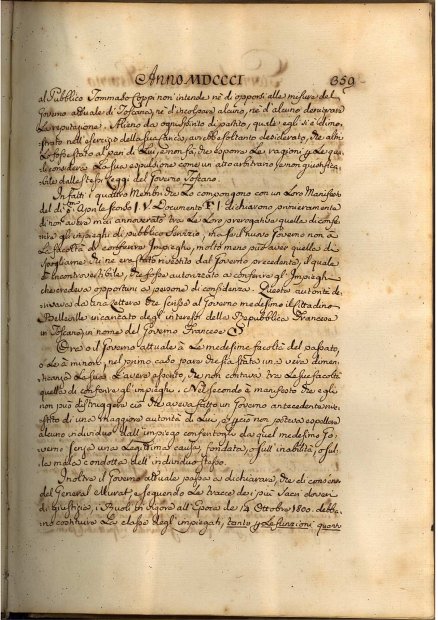 Anno MDCCCI
359
al Pubblico Tommaso Coppi non intende nè d'opporsi alle misure del
Governo attuale di Toscana, nè d'incolpare alcuno, nè d'alcuno denigrare
la reputazione. Alieno da ogni spirito di partito, quale egli si è dimo,
strato nell'esercizio della sua carica, avrebbe soltanto desiderato, che altri
lo fosse stato al pari di Lui, e non fa, che esporre le ragioni per le quali
considera la sua espulsione come un atto arbitrario, e non giustifica,
bile dalle stesse Leggi del Governo Toscano.
In fatti i quattro Membri che lo compongono con un Loro Manifesto
del dì Aprile Documento dichiarano primieramente
di non avere mai annoverato tra le Loro prerogative quella di confe,
rire gli impieghi di pubblico Servizio, ma se il nuovo Governo non à
la facoltà di conferire Impieghi, molto meno può aver quella di
spogliarne chi ne era stato rivestito dal Governo precedente, il quale
è incontrovertibile, che fosse autorizzato a conferire gl'Impieghi
che credeva opportuni a persone di confidenza. Questa autorità de,
rivava da una Lettera che scrisse al Governo medesimo il Cittadino
Belleville incaricato degl'interessi della Repubblica Francese
in Toscana, in nome del Governo Francese
Ora o il Governo attuale à le medesime facoltà del passato,
o le à minori; nel primo caso pare che sia stata una vera dimen,
ticanza la sua l'avere asserito, che non contava tra le sue facoltà
quella di conferire gl'impieghi. Nel secondo è manifesto che egli
non può distruggere ciò che aveva fatto un Governo antecedente rive,
stito di una maggiore autorità di Lui, e perciò non poteva espellere
alcuno individuo dall'impiego conferitogli da quel medesimo Go,
verno senza una Legittima causa, fondata, o sull'inabilità, o sul,
la mala condotta dell'individuo stesso.
Inoltre il Governo attuale passa a dichiarare, che di concerto
del General Murat, e seguendo le tracce dei più sacri doveri
di giustizia, i Ruoli in vigore all'Epoca de' 14 Ottobre 1800. debb,
ono costituire la classe degl'impiegati, tanto per le funzioni, quan,